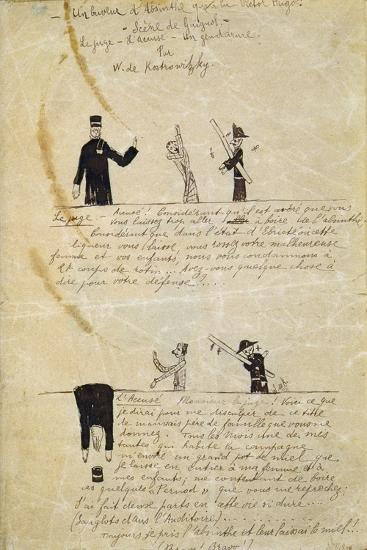 — Un buveur d'Absinthe qui a lu Victor Hugo. —
- Scène de Guignol. -
Le juge - L'Accusé - Un gendarme.
Par
W. de Kostrowitzky.
Le juge — Accusé! Considérant qu'il est avéré que vous
vous laissez trop aller à boire de l'absinthe
Considérant que dans l'état d'Ébriété où cette
liqueur vous laisse, vous rossez votre malheureuse
femme et vos enfants, nous vous condamnons à
coups de rotin... Avez-vous quelque chose à
dire pour votre défense?....
L'Accusé Monsieur le juge! Voici ce que
je dirai pour me disculper de ce titre
de mauvais père de famille que vous me
donnez: Tous les mois une de mes
tantes qui habite la campagne
m'envoie un grand pot de miel que
je laisse en entier à ma femme et à
mes enfants; me contentant de boire
ces quelques « Pernod » que vous me reprochez.
J'ai fait deux parts en cette vie si dure...
(Sanglots dans l'Auditoire)
Toujours je pris l'Absinthe et leur laissai le miel!!
Bravo! Bravo!